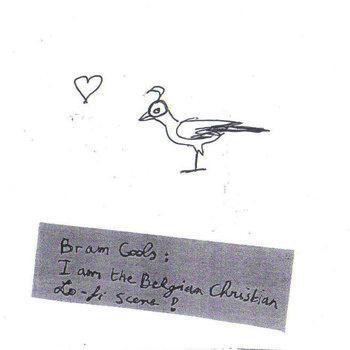 Bram Cools:
I am the Belgian Christian
Lo-fi scene!